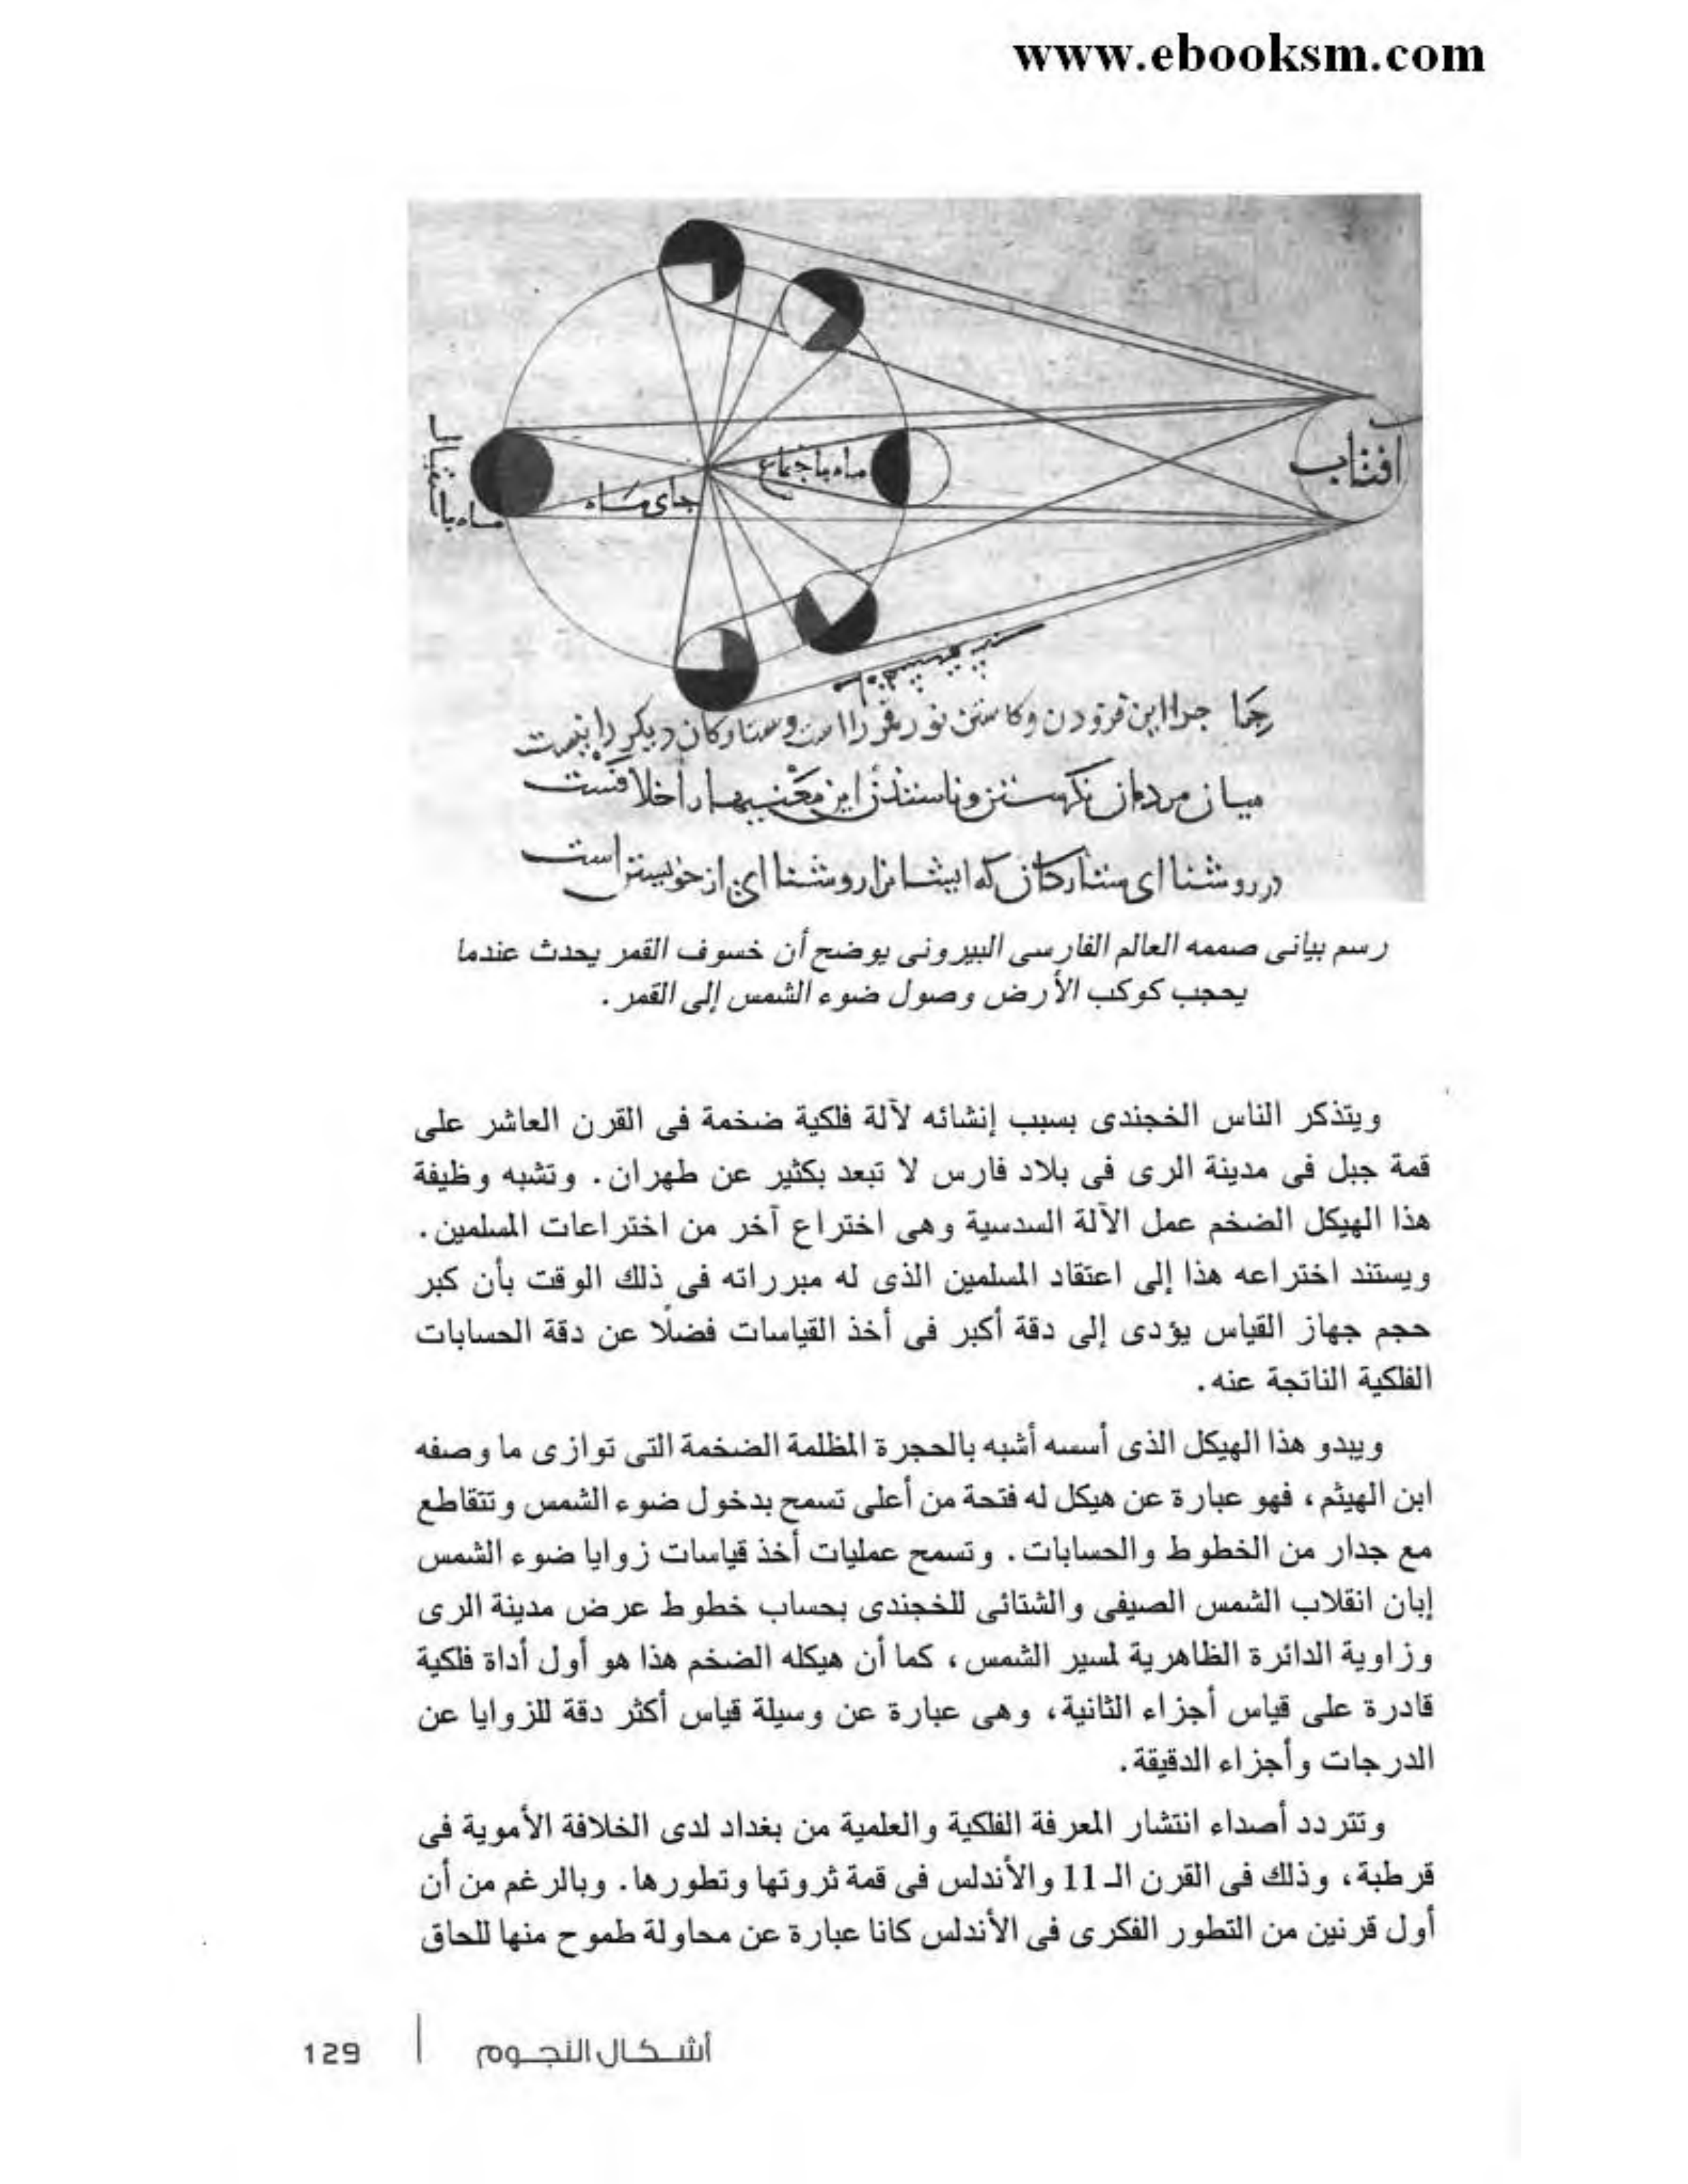 www.ebooksm.com
افتاب
ماه باجتماع
جاى ماه
ميان مردمان
در روشنا اى ستاركان كه ايشانرا روشنا اى از خويشتن است
رسم بيانى صممه العالم الفارسى البيرونى يوضح أن خسوف القمر يحدث عندما
يحجب كوكب الأرض وصول ضوء الشمس إلى القمر.
ويتذكر الناس الخجندى بسبب إنشائه لآلة فلكية ضخمة فى القرن العاشر على
قمة جبل فى مدينة الرى فى بلاد فارس لا تبعد بكثير عن طهران. وتشبه وظيفة
هذا الهيكل الضخم عمل الآلة السدسية وهى اختراع آخر من اختراعات المسلمين.
ويستند اختراعه هذا إلى اعتقاد المسلمين الذى له مبرراته فى ذلك الوقت بأن كبر
حجم جهاز القياس يؤدى إلى دقة أكبر فى أخذ القياسات فضلًا عن دقة الحسابات
الفلكية الناتجة عنه.
ويبدو هذا الهيكل الذى أسسه أشبه بالحجرة المظلمة الضخمة التى توازى ما وصفه
ابن الهيثم، فهو عبارة عن هيكل له فتحة من أعلى تسمح بدخول ضوء الشمس وتتقاطع
مع جدار من الخطوط والحسابات. وتسمح عمليات أخذ قياسات زوايا ضوء الشمس
إبان انقلاب الشمس الصيفى والشتائى للخجندى بحساب خطوط عرض مدينة الرى
وزاوية الدائرة الظاهرية لمسير الشمس، كما أن هيكله الضخم هذا هو أول أداة فلكية
قادرة على قياس أجزاء الثانية، وهى عبارة عن وسيلة قياس أكثر دقة للزوايا عن
الدرجات وأجزاء الدقيقة.
وتتردد أصداء انتشار المعرفة الفلكية والعلمية من بغداد لدى الخلافة الأموية فى
قرطبة، وذلك فى القرن الـ 11 والأندلس فى قمة ثروتها وتطورها. وبالرغم من أن
أول قرنين من التطور الفكرى فى الأندلس كانا عبارة عن محاولة طموح منها للحاق
أشكال النجوم | 129